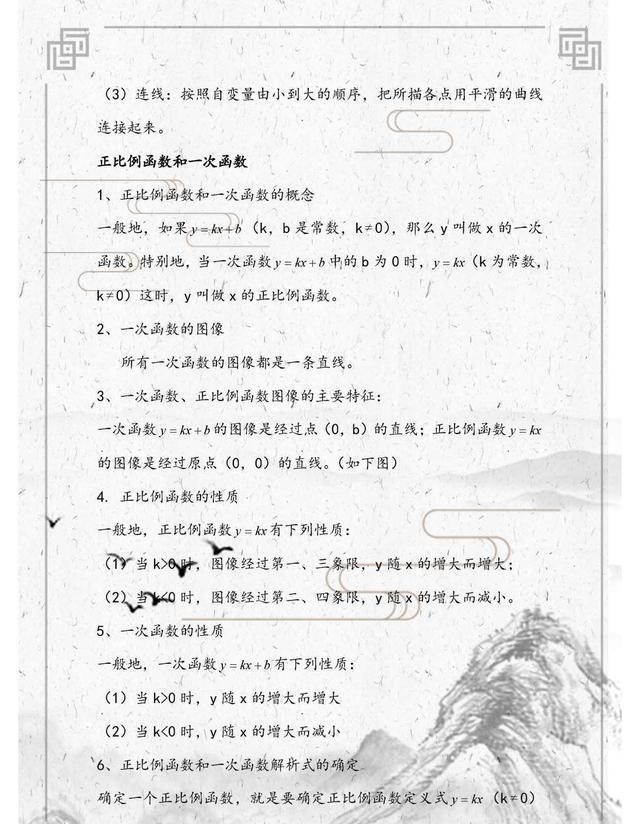 （3）连线：按照自变量由小到大的顺序，把所描各点用平滑的曲线
连接起来。
正比例函数和一次函数
1、正比例函数和一次函数的概念
一般地，如果y=kx+b（k，b是常数，k≠0），那么y叫做x的一次
函数。特别地，当一次函数y=kx+b中的b为0时，y=kx（k为常数，
k≠0）这时，y叫做x的正比例函数。
2、一次函数的图像
所有一次函数的图像都是一条直线。
3、一次函数、正比例函数图像的主要特征：
一次函数y=kx+b的图像是经过点（0，b）的直线；正比例函数y=kx
的图像是经过原点（0，0）的直线。（如下图）
4. 正比例函数的性质
一般地，正比例函数y=kx有下列性质：
（1）当k>0时，图像经过第一、三象限，y随x的增大而增大；
（2）当k<0时，图像经过第二、四象限，y随x的增大而减小。
5、一次函数的性质
一般地，一次函数y=kx+b有下列性质：
（1）当k>0时，y随x的增大而增大
（2）当k<0时，y随x的增大而减小
6、正比例函数和一次函数解析式的确定
确定一个正比例函数，就是要确定正比例函数定义式y=kx（k≠0）